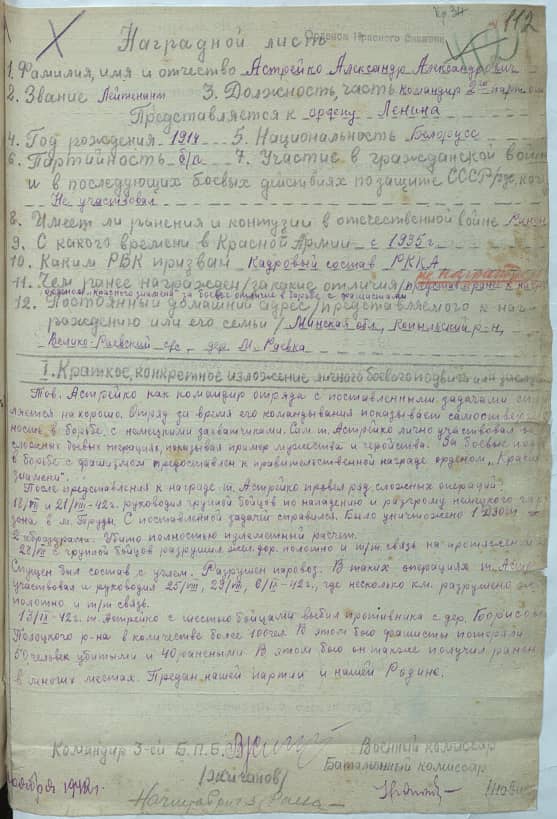 112
Орденом Красного Знамени
Наградной лист
1. Фамилия, имя и отчество Астрейко Александр Александрович
2. Звание Лейтенант 3. Должность, часть командир 2го парт.
Представляется к ордену Ленина
4. Год рождения 1914 5. Национальность Белорусс
6. Партийность б/п 7. Участие в гражданской войне
и в последующих боевых действиях по защите СССР/где, ко
Не участвовал
8. Имеет ли ранения и контузии в отечественной войне
9. С какого времени в Красной Армии с 1935 г
10. Каким РВК призван Кадровый состав РККА
11. Чем ранее награжден/за какие отличия/
за боевые отличия в борьбе с фашизмом
12. Постоянный домашний адрес/представляемого к наг-
рождению или его семьи/ Минская обл, р-н,
Велико-Раевский с/с, дер. М-Раевка
I. Краткое, конкретное изложение личного боевого подвига или
Тов. Астрейко как командир отряда с поставленными задачами
ляется на хорошо. Отряд за время его командования показывает
ность в борьбе с немецкими захватчиками. Сам т. Астрейко лично участвовал в
сложных боевых операциях, показывая пример мужества и геройства. За боевые
в борьбе с фашизмом предоставлен к правительственной награде орденом "Красн
Знамени".
После представления к награде т. Астрейко провел ряд сложных операций:
18/VII и 21/VIII-42г. руководил группой бойцов по нападению и разгрому немецкого гар
зона в м. Труды. С поставленной задачей справился. Было уничтожено 1 ДЗОТ
Убито полностью пулеметный расчет.
22/VII с группой бойцов разрушил жел. дор. полотно и т/т связь на протяжении
Спущен был состав с углем. Разрушен паровоз. В таких операциях т. Астр
участвовал и руководил 25/VIII, 29/VIII, 6/IX-42г, где несколько км. разрушено
полотно и т/т связь.
13/IX-42г. т. Астрейко с шестью бойцами выбил противника с дер. Борисов
Полоцкого р-на в количестве более 100 чел. В этом бою фашисты потеряли
человек убитыми и 40 раненными. В этом бою он также получил ранен
в многих местах. Предан нашей партии и нашей Родине.
Командир 3-ей Б.П.Б. Военный комиссар
Батальонный комиссар
1942 г.